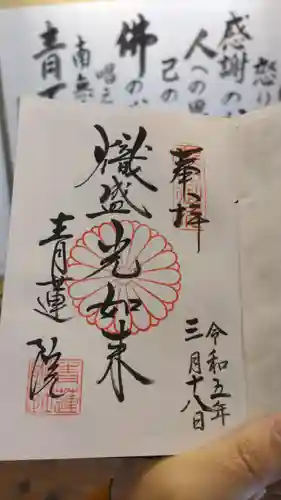 奉拝
令和五年
三月十八日
熾盛光如来
青蓮院
感謝の
人への
己の
佛の
唱え
南無
青
怒り